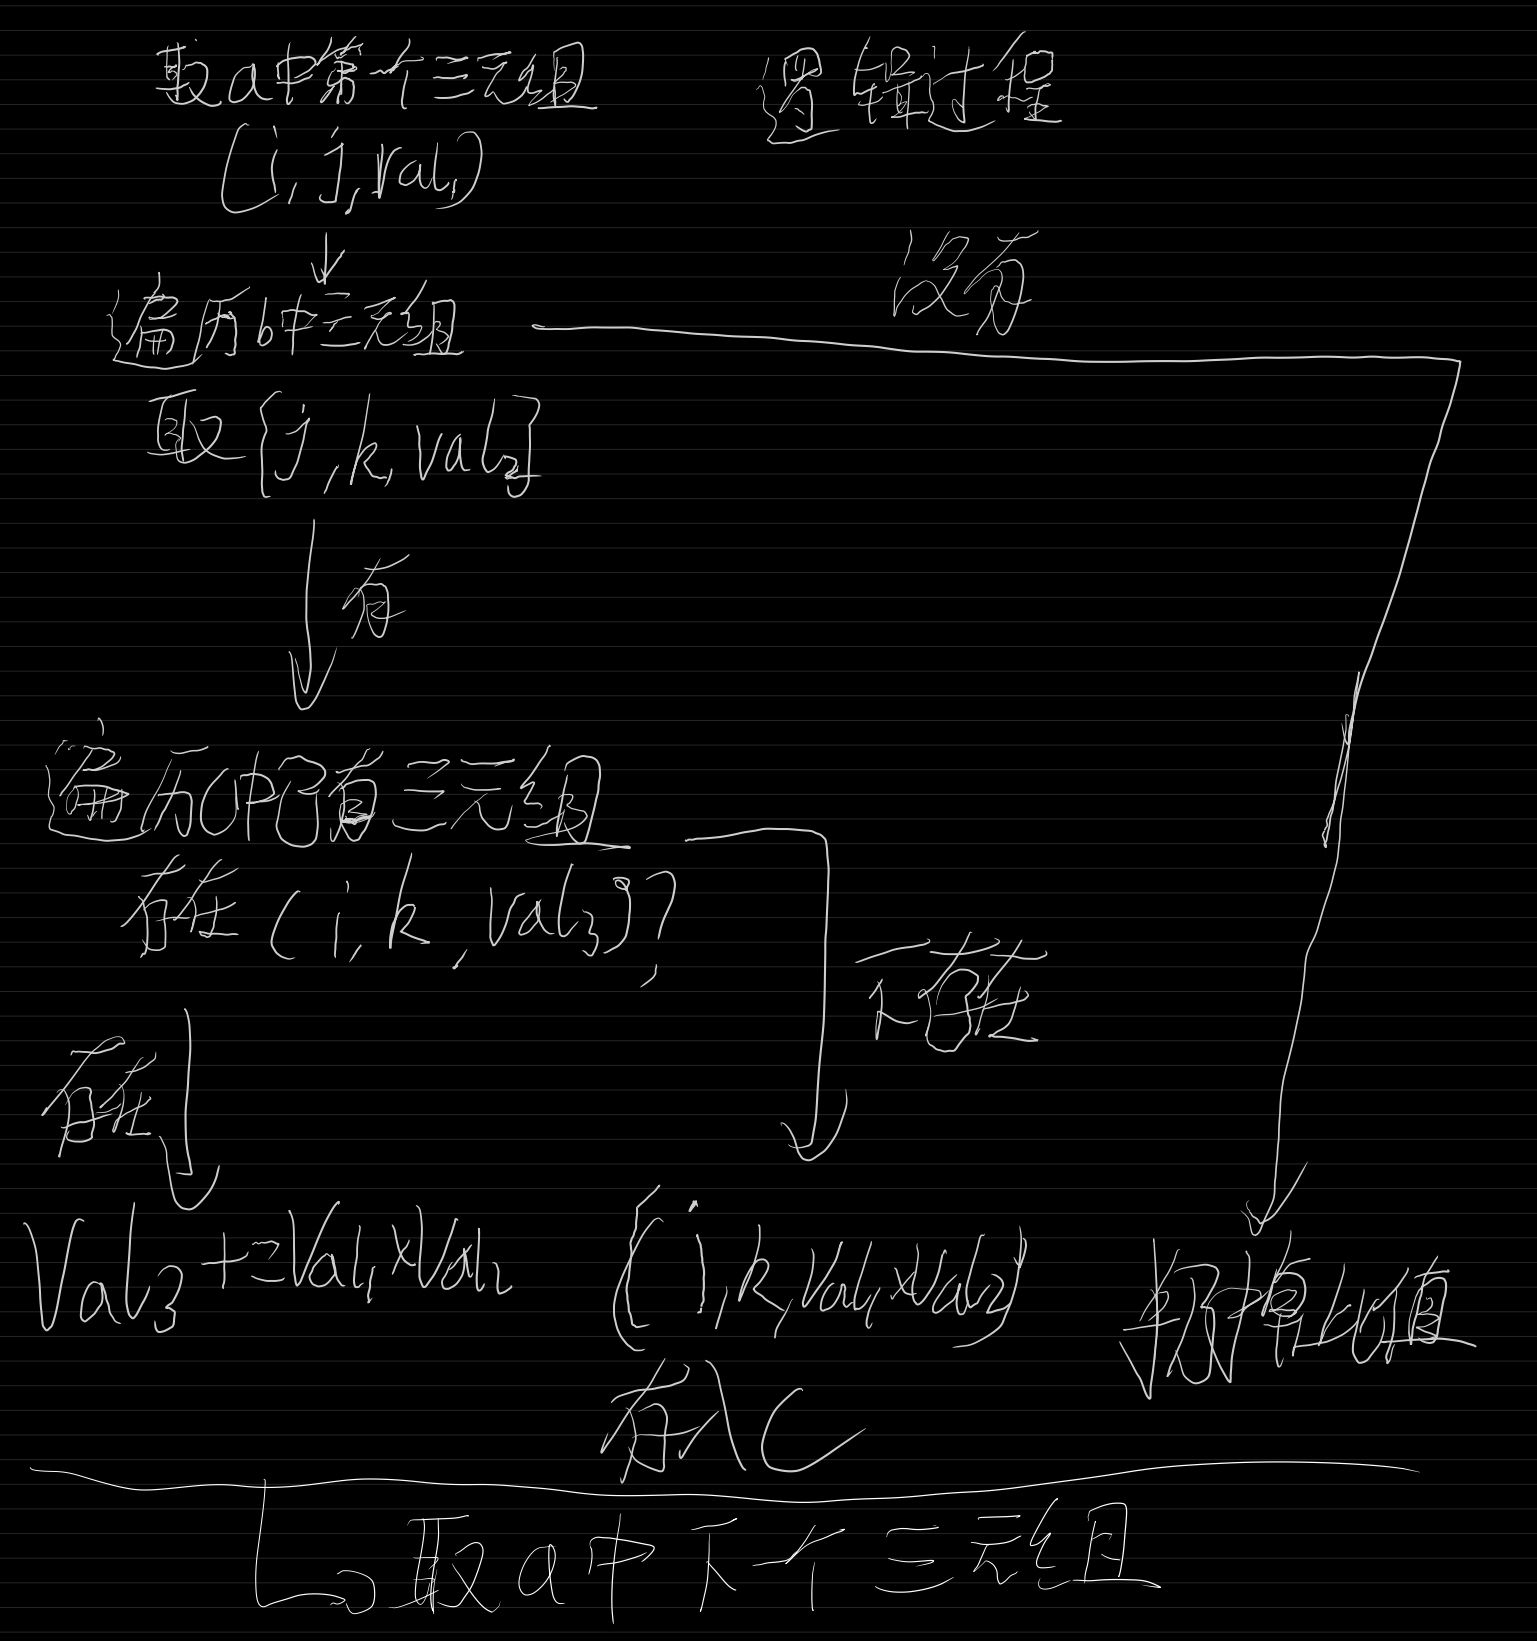 取a中第一个三元组
逻辑过程
(i, j, val₁)
没有
遍历b中三元组
取{j, k, val₂}
有
遍历C中已有三元组
存在(i, k, val₃)?
不存在
存在
Val₃+=Val₁×Val₂
{i, k, Val₁×Val₂}
抛掉此值
存入C
取a中下一个三元组